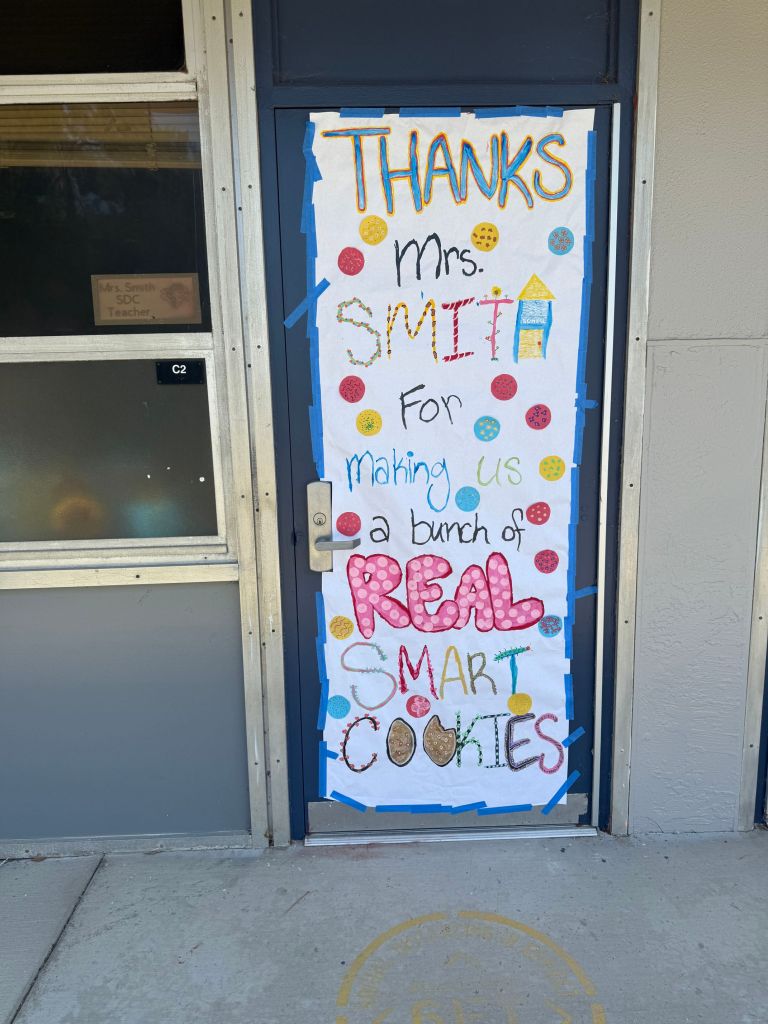 THANKS
Mrs.
SMITH
For
making us
a bunch of
REAL
SMART
COOKIES
Mrs. Smith
SDC
Teacher
C2
SCHOOL
6FT